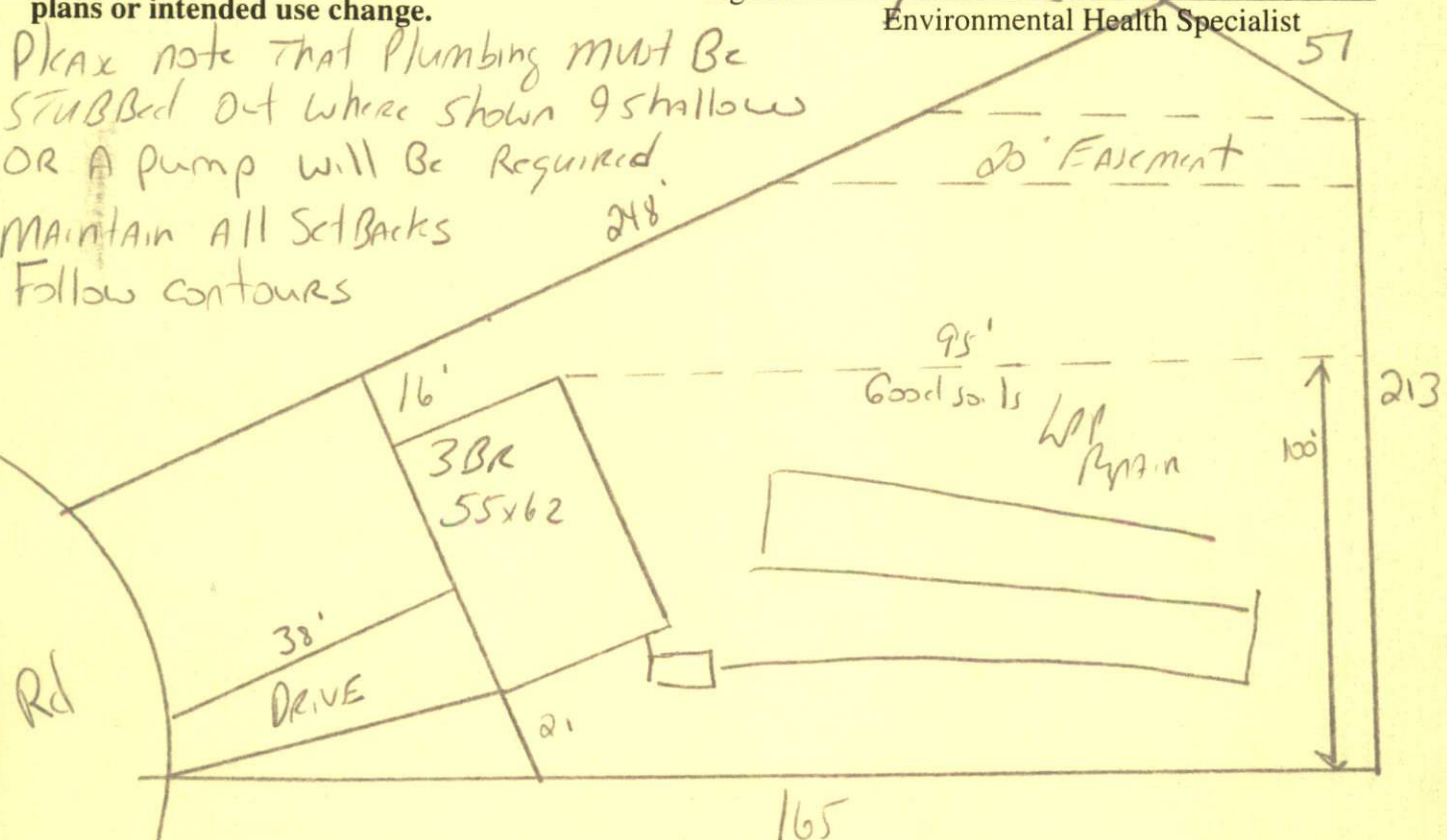 plans or intended use change.
Environmental Health Specialist
Please note That Plumbing must Be
STUBBed Out where shown & shallow
OR A pump will Be Required
MAintAin All SetBAcks
Follow contours
57
20' EAsement
248'
95'
Good soils
213
100'
16'
3BR
55x62
38'
DRIVE
Rd
21
165